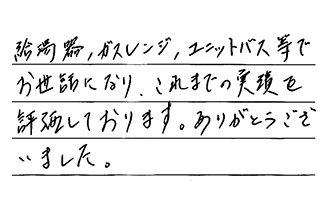 給湯器,ガスレンジ,ユニットバス等で
お世話になり、これまでの実績を
評価しております。ありがとうござ
いました。